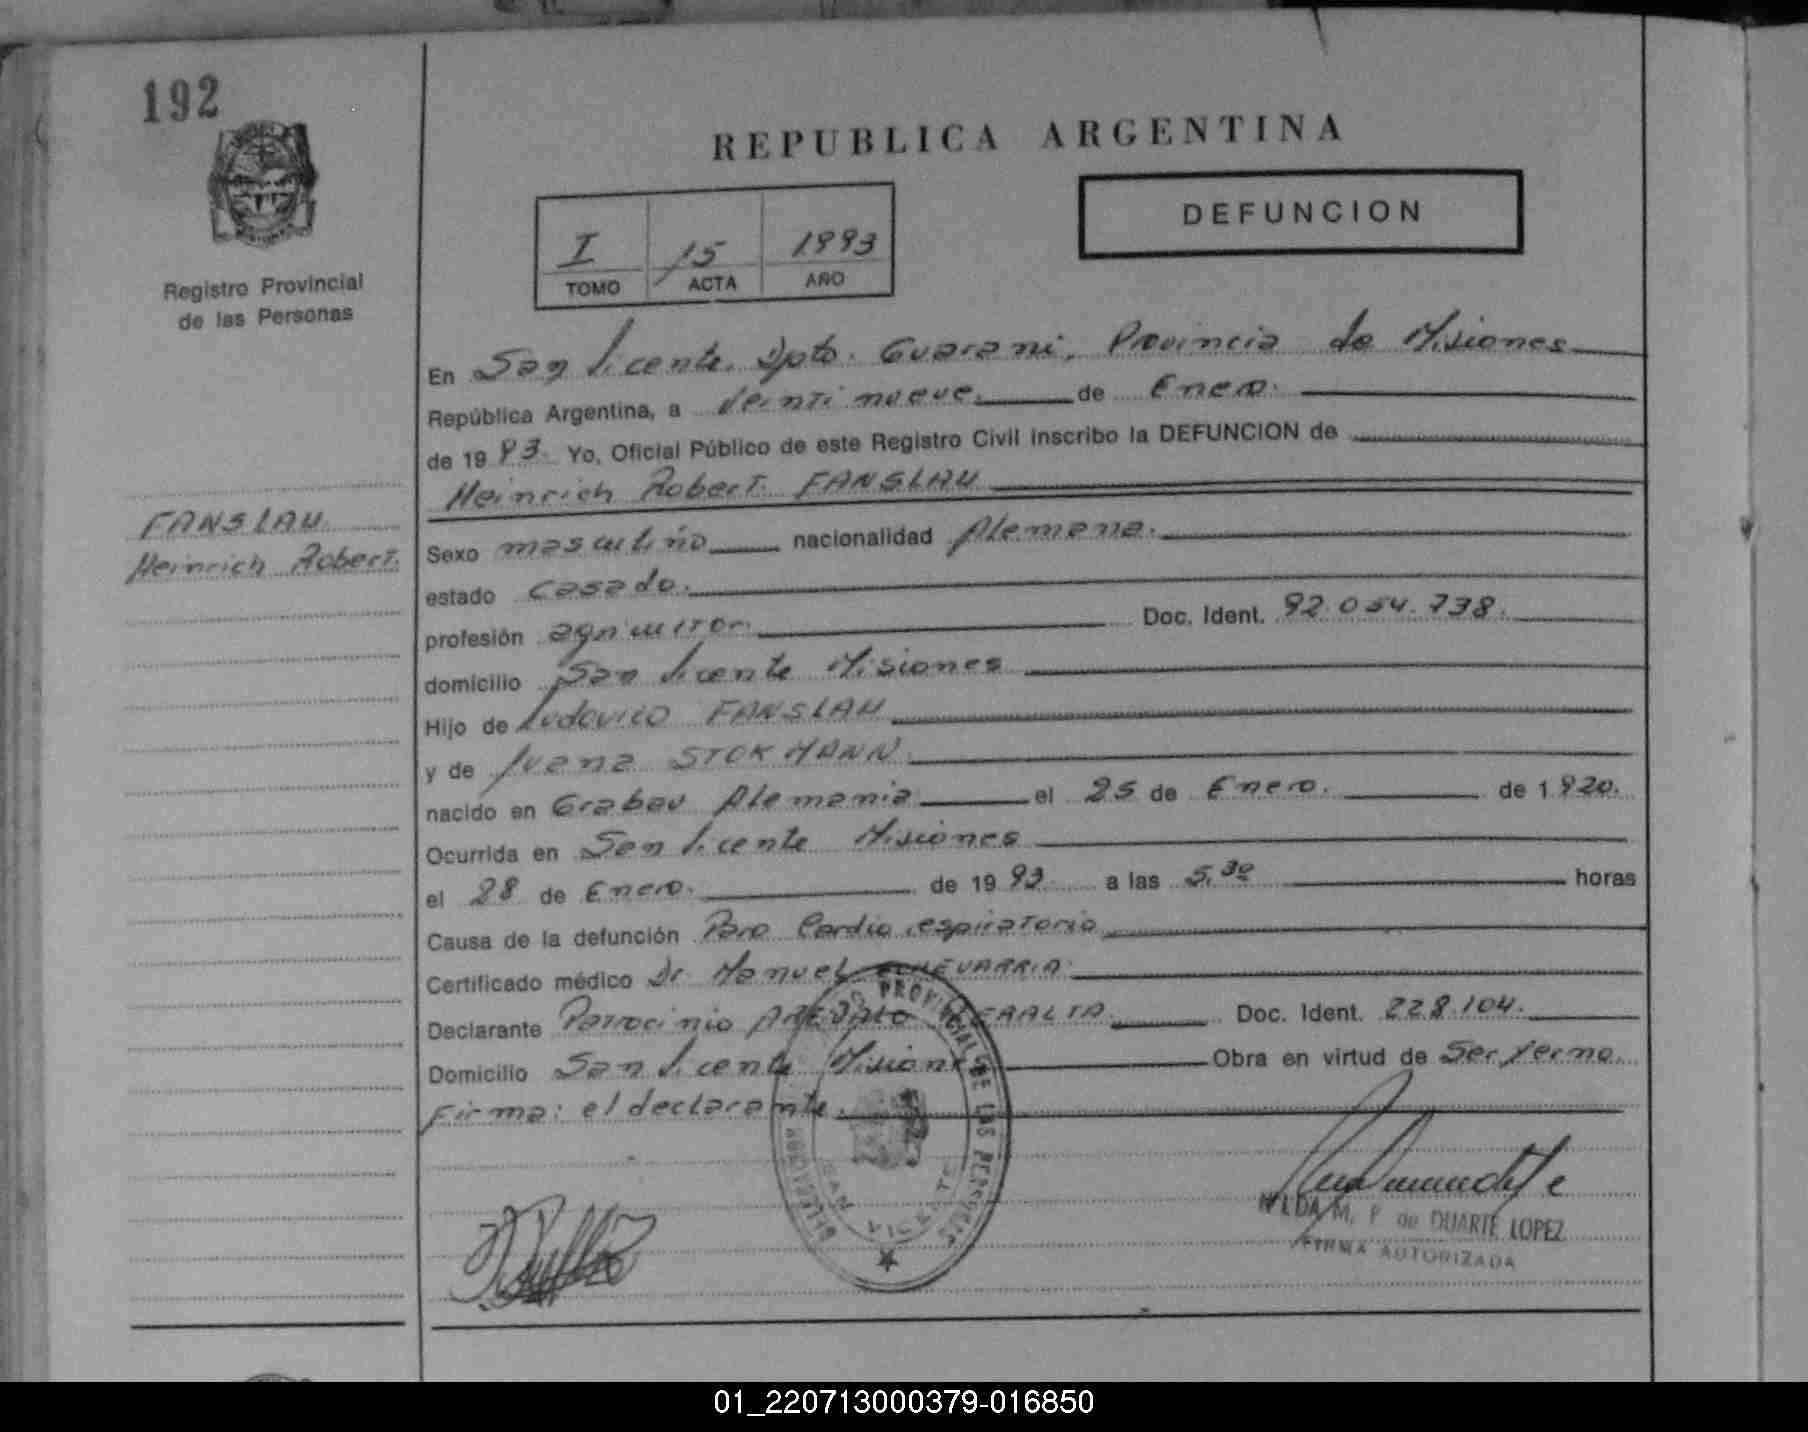 192
REPUBLICA ARGENTINA
DEFUNCION
I 15 1993
TOMO ACTA AÑO
Registro Provincial
de las Personas
FANSLAU
Heinrich Robert.
En San Vicente, Dpto. Guarani, Provincia de Misiones
República Argentina, a Veinti nueve. de Enero.
de 19 93. Yo, Oficial Público de este Registro Civil inscribo la DEFUNCION de
Heinrich Robert FANSLAU
Sexo masculino nacionalidad Alemana.
estado casado.
profesión agricultor. Doc. Ident. 92.054.738.
domicilio San Vicente Misiones
Hijo de Ludovico FANSLAU
y de Juana STOKMANN
nacido en Grabau Alemania el 25 de Enero. de 1 920.
Ocurrida en San Vicente Misiones
el 28 de Enero. de 19 93. a las 5,30 horas
Causa de la defunción Paro Cardio respiratorio
Certificado médico Dr. Manuel ECHEVARRIA
Declarante Patrocinio AREVALO PERALTA. Doc. Ident. 228.104.
Domicilio San Vicente Misiones Obra en virtud de Ser yerno.
Firma: el declarante.
PROVINCIAL DE LAS PERSONAS
SAN VICENTE
HILDA M. P. de DUARTE LOPEZ
FIRMA AUTORIZADA
01_220713000379-016850